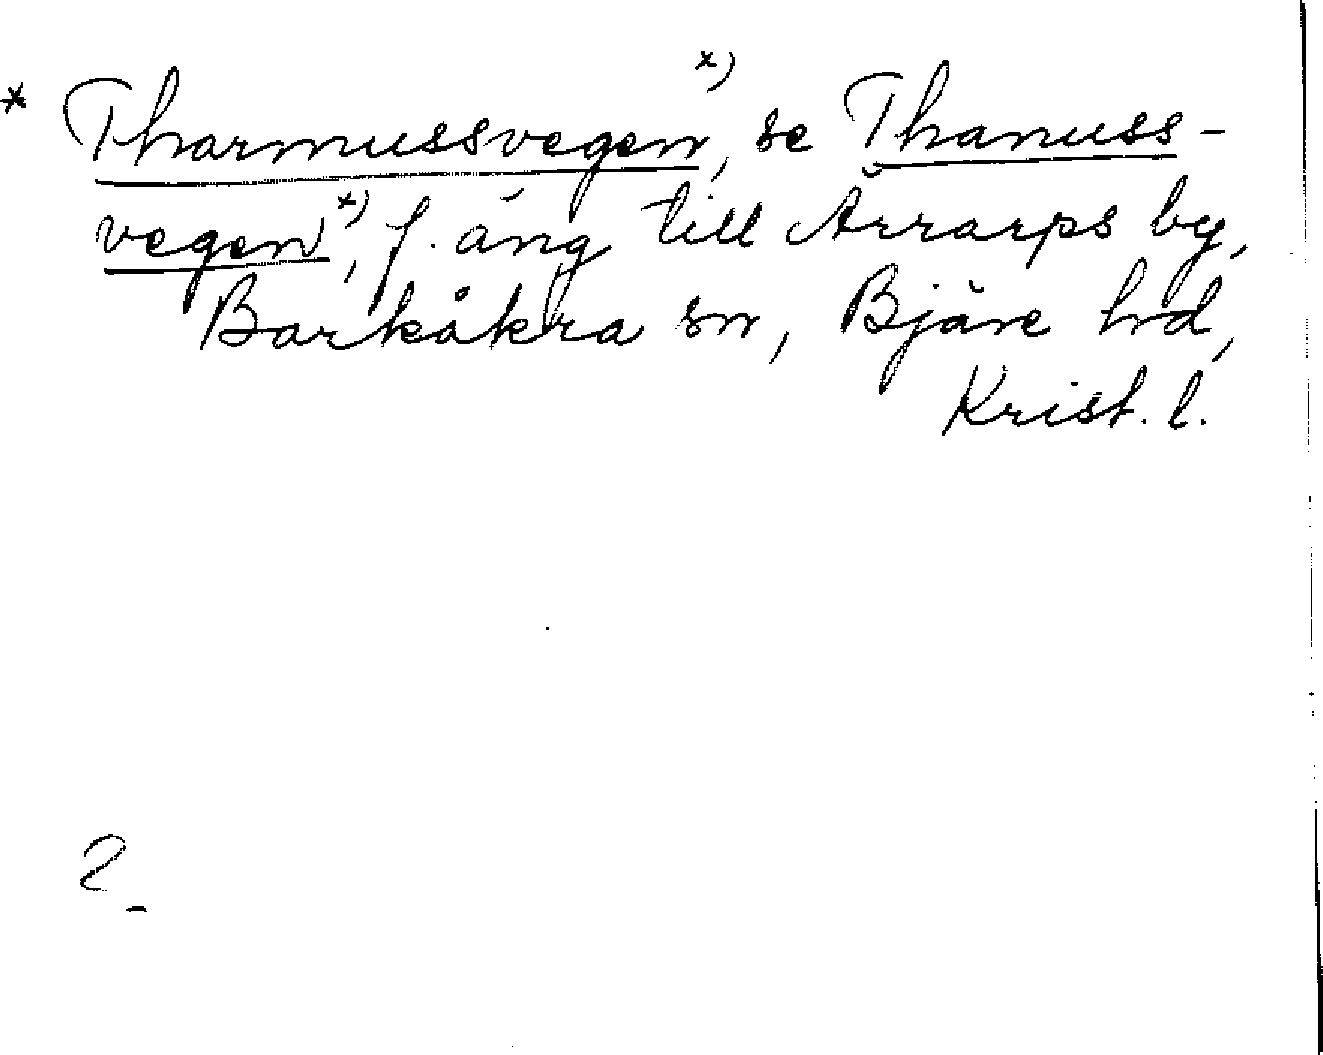 * Tharmussvegen x), se Thanuss-
vegen x), f. äng till Ärrarps by,
Barkåkra sn, Bjäre hd,
Krist. l.
2